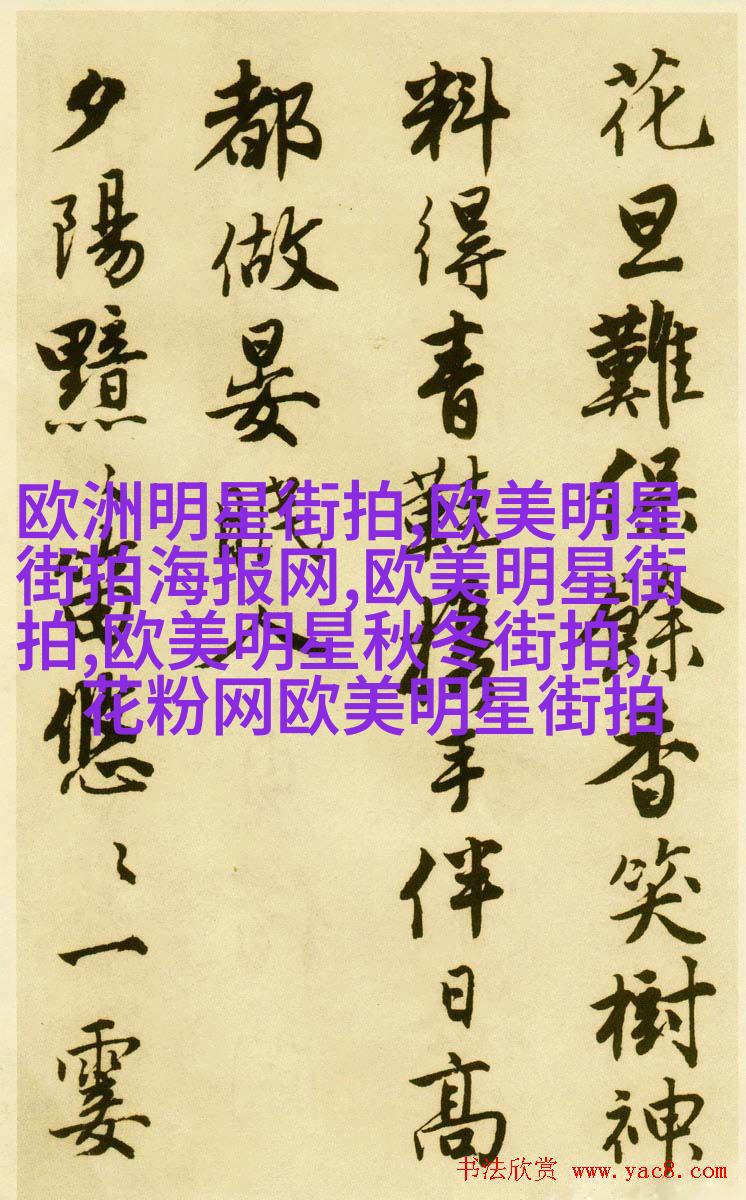 花旦難保餘香笑樹神
料得青鞵携手伴日高
都做晏眠人
夕陽黯〻笛悠〻一霎
欧洲明星街拍,欧美明星
街拍海报网,欧美明星街
拍,欧美明星秋冬街拍,
花粉网欧美明星街拍
书法欣赏 www.yac8.com